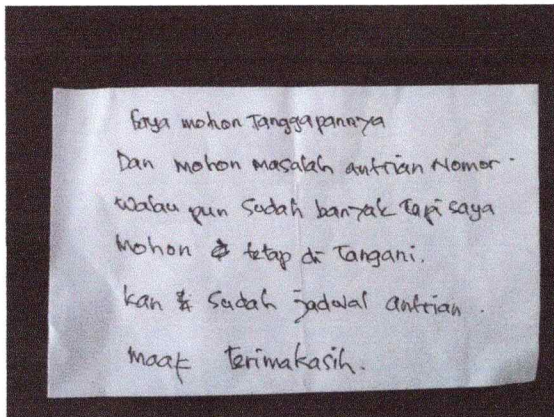 Saya mohon Tanggapannya
Dan mohon masalah antrian Nomor.
walau pun sudah banyak Tapi saya
Mohon tetap di Tangani.
kan sudah jadwal antrian.
maaf terimakasih.